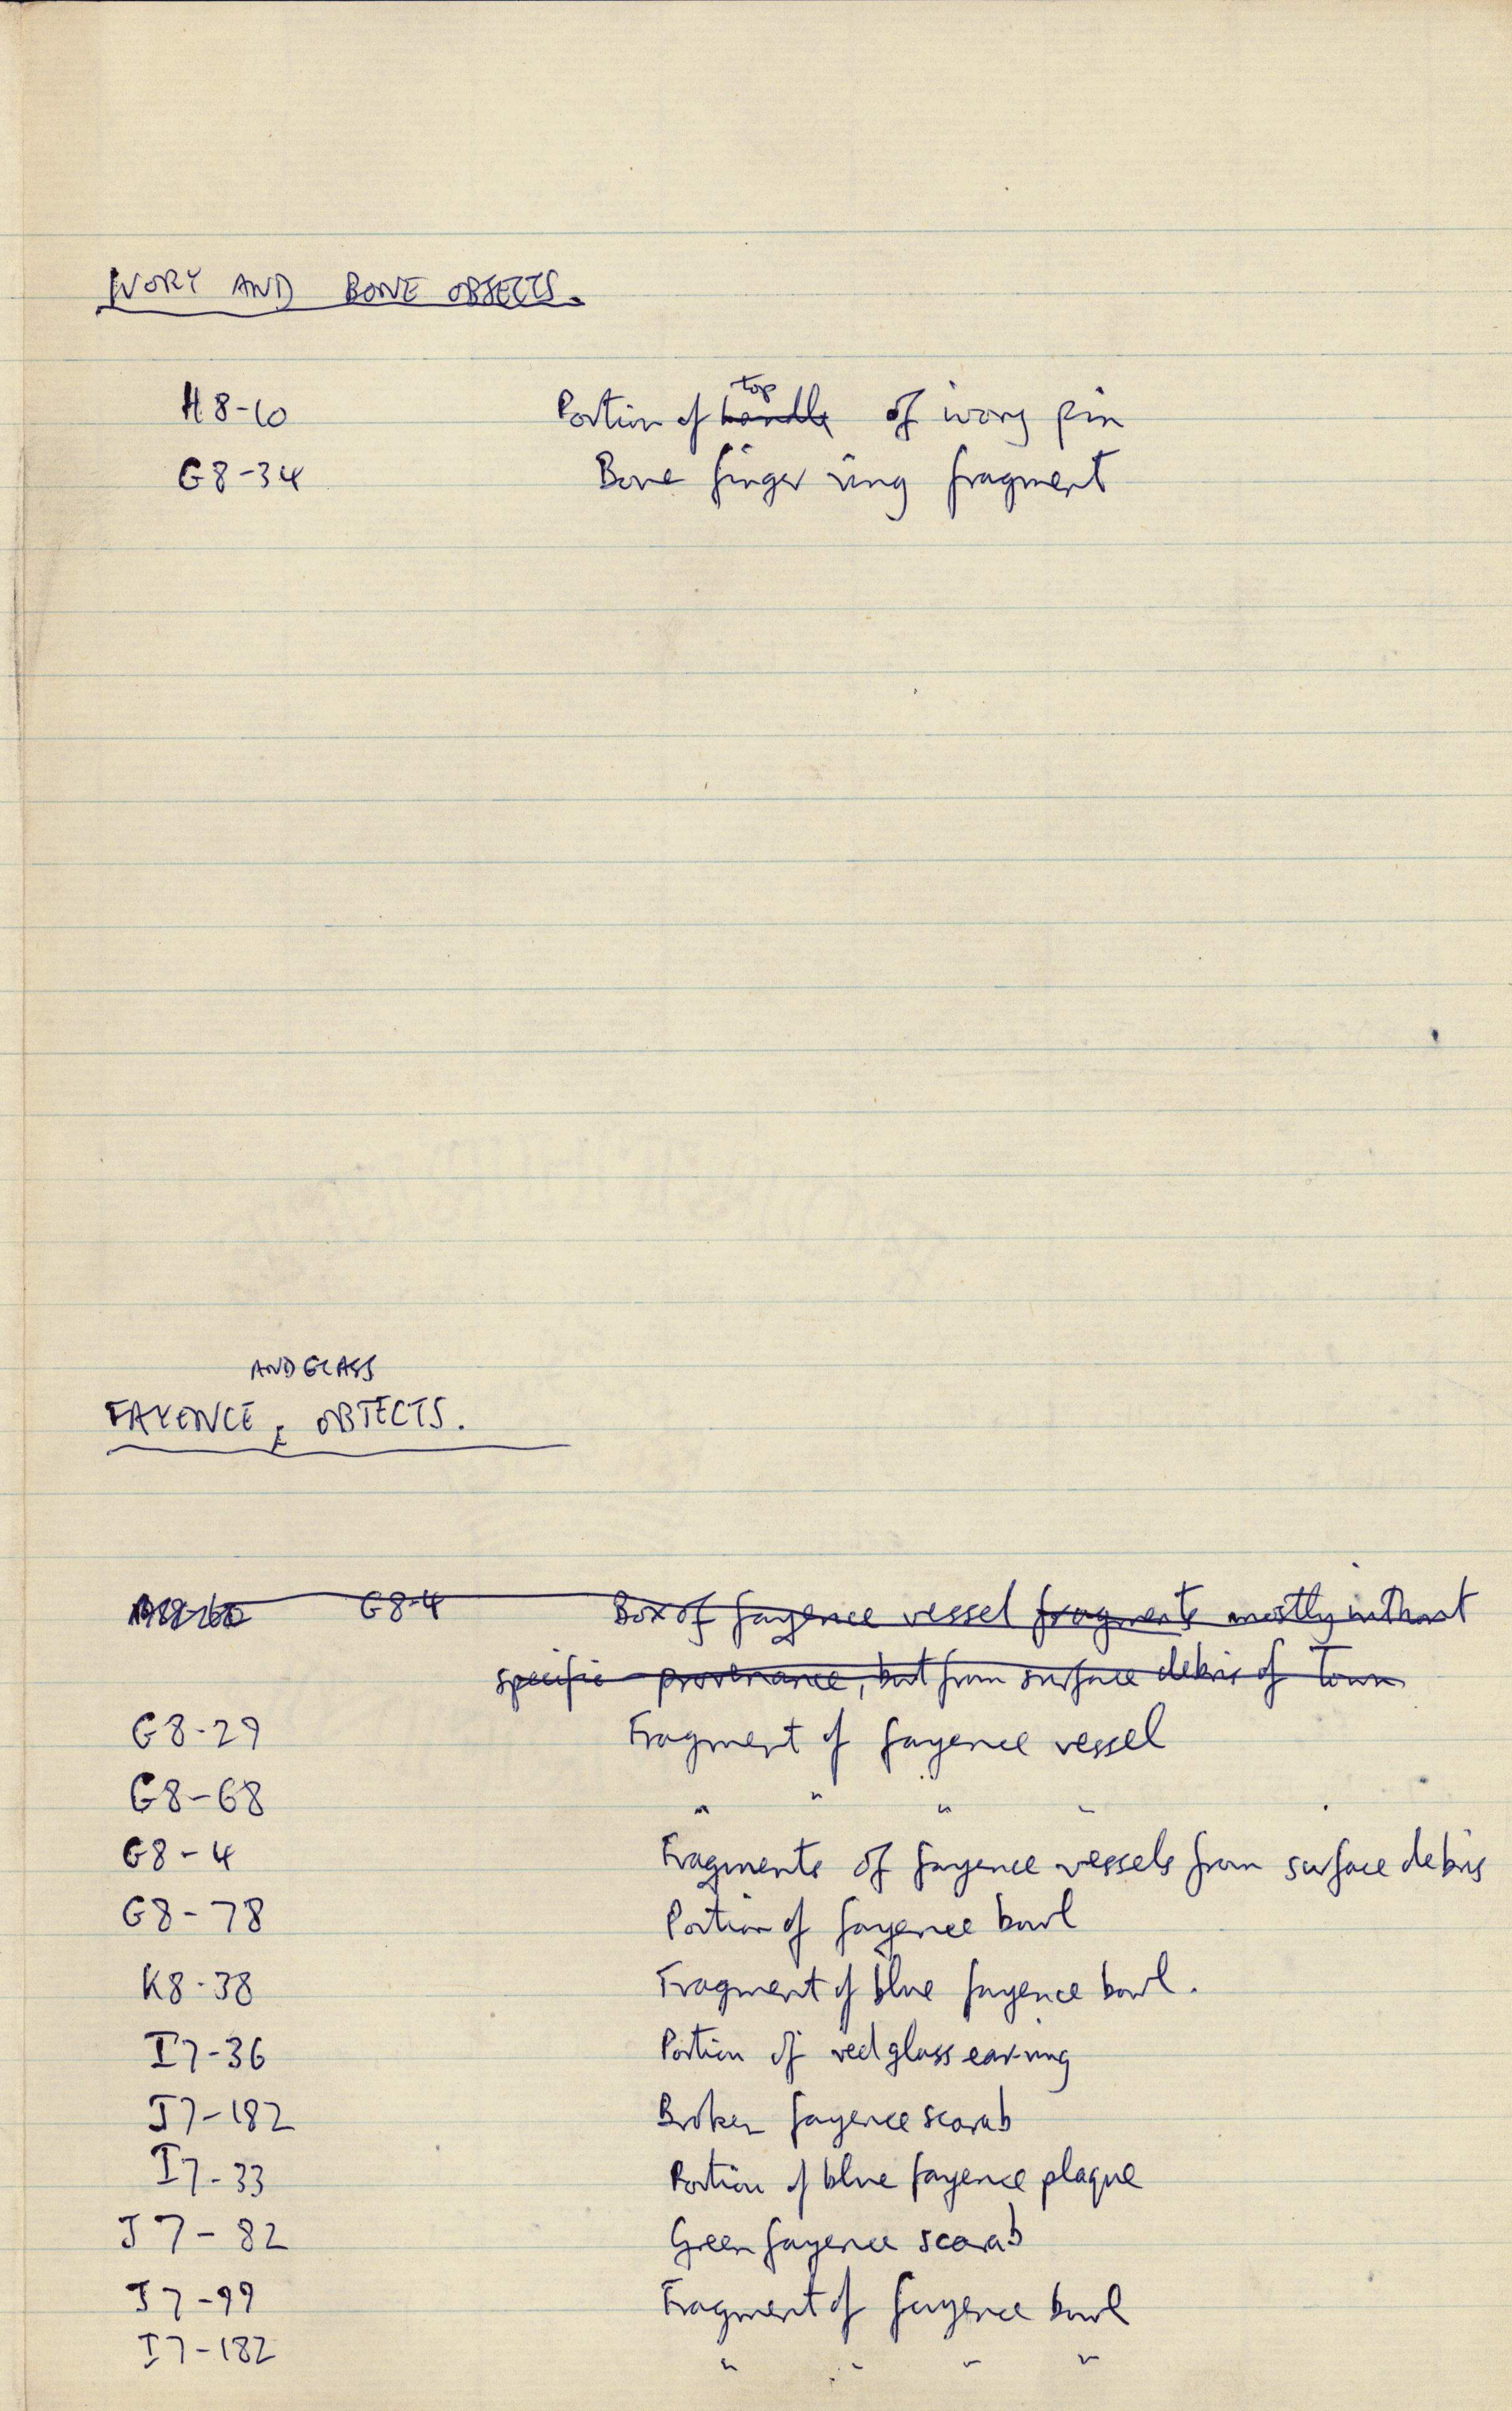 IVORY AND BONE OBJECTS.
H8-10 Portion of handle top of ivory pin
G8-34 Bone finger ring fragment
AND GLASS
FAYENCE, OBJECTS.
G8-4 Box of fayence vessel fragments mostly without
specific provenance, but from surface debris of Town
G8-29 Fragment of fayence vessel
G8-68 " " " "
G8-4 Fragments of fayence vessels from surface debris
G8-78 Portion of fayence bowl
K8-38 Fragment of blue fayence bowl.
I7-36 Portion of red glass earring
J7-182 Broken fayence scarab
I7-33 Portion of blue fayence plaque
J7-82 Green fayence scarab
J7-99 Fragment of fayence bowl
I7-182 " " " "